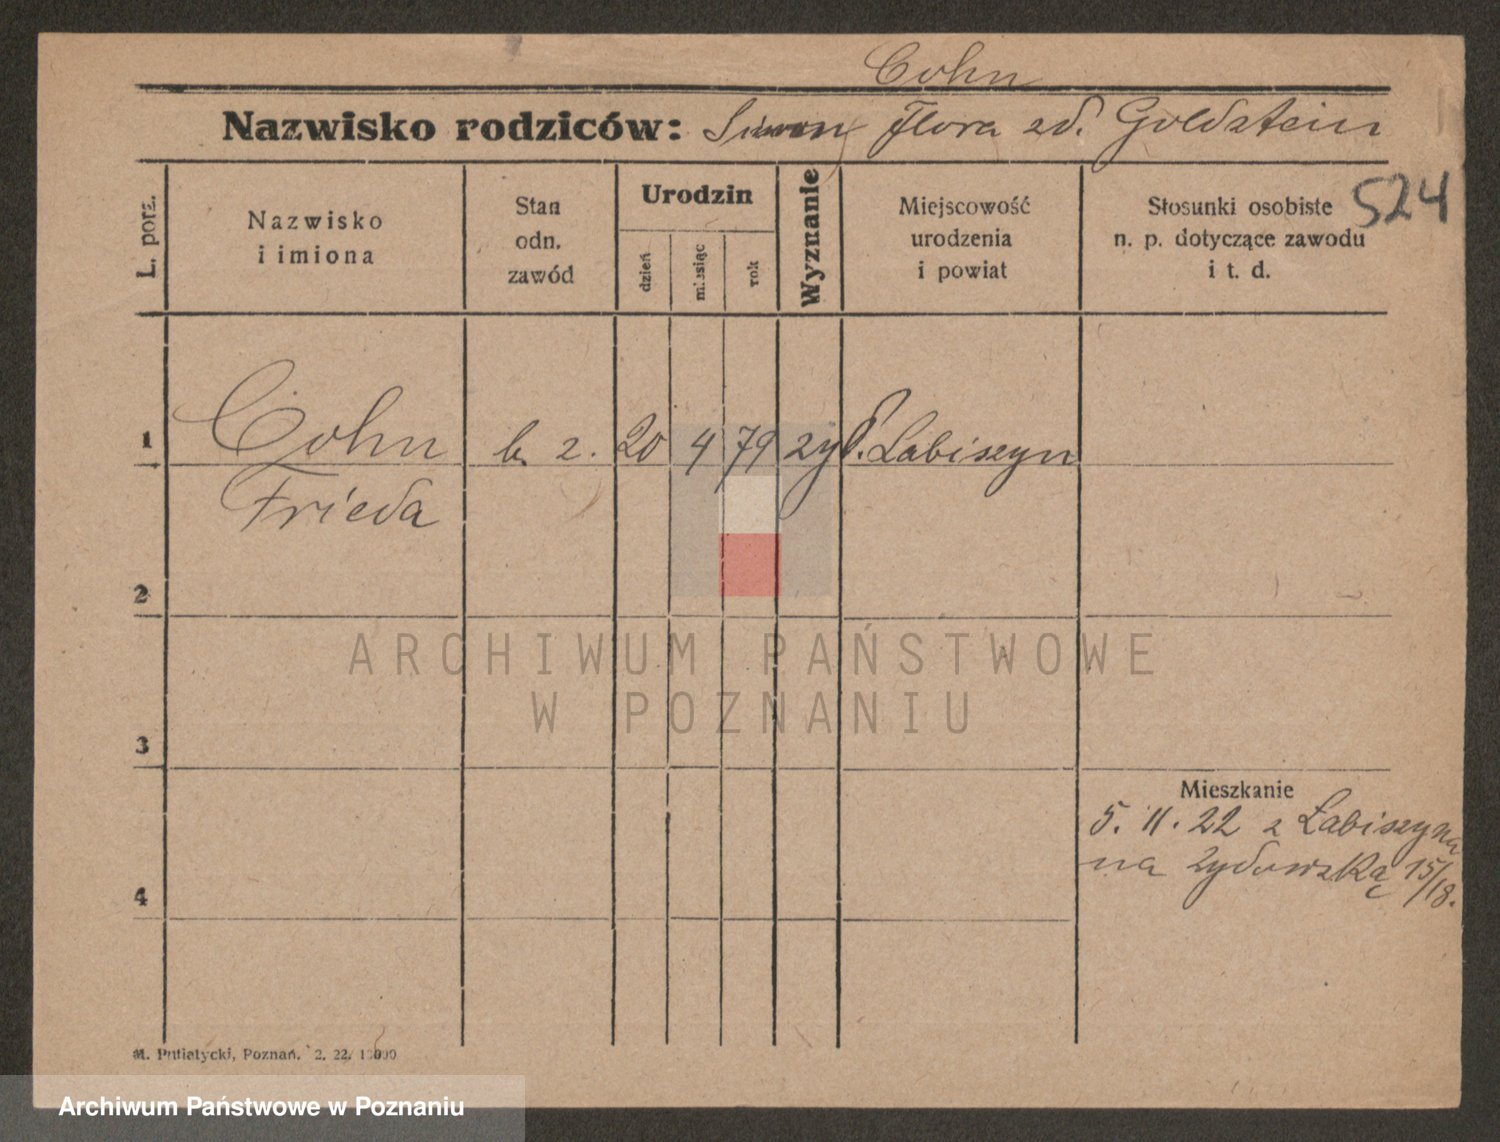 Cohn
Nazwisko rodziców: Simon Flora zd. Goldstein
524
L. porz.
Nazwisko
i imiona
Stan
odn.
zawód
Urodzin
dzień
miesiąc
rok
Wyznanie
Miejscowość
urodzenia
i powiat
Stosunki osobiste
n. p. dotyczące zawodu
i t. d.
1 Cohn b. z. 20 4 79 żyd. Łabiszyn
Frieda
2
3
4
Mieszkanie
5. 11. 22 z Łabiszyna
na Żydowską 15/18.
ARCHIWUM PAŃSTWOWE
W POZNANIU
M. Putiatycki, Poznań. 2. 22. 10000
Archiwum Państwowe w Poznaniu